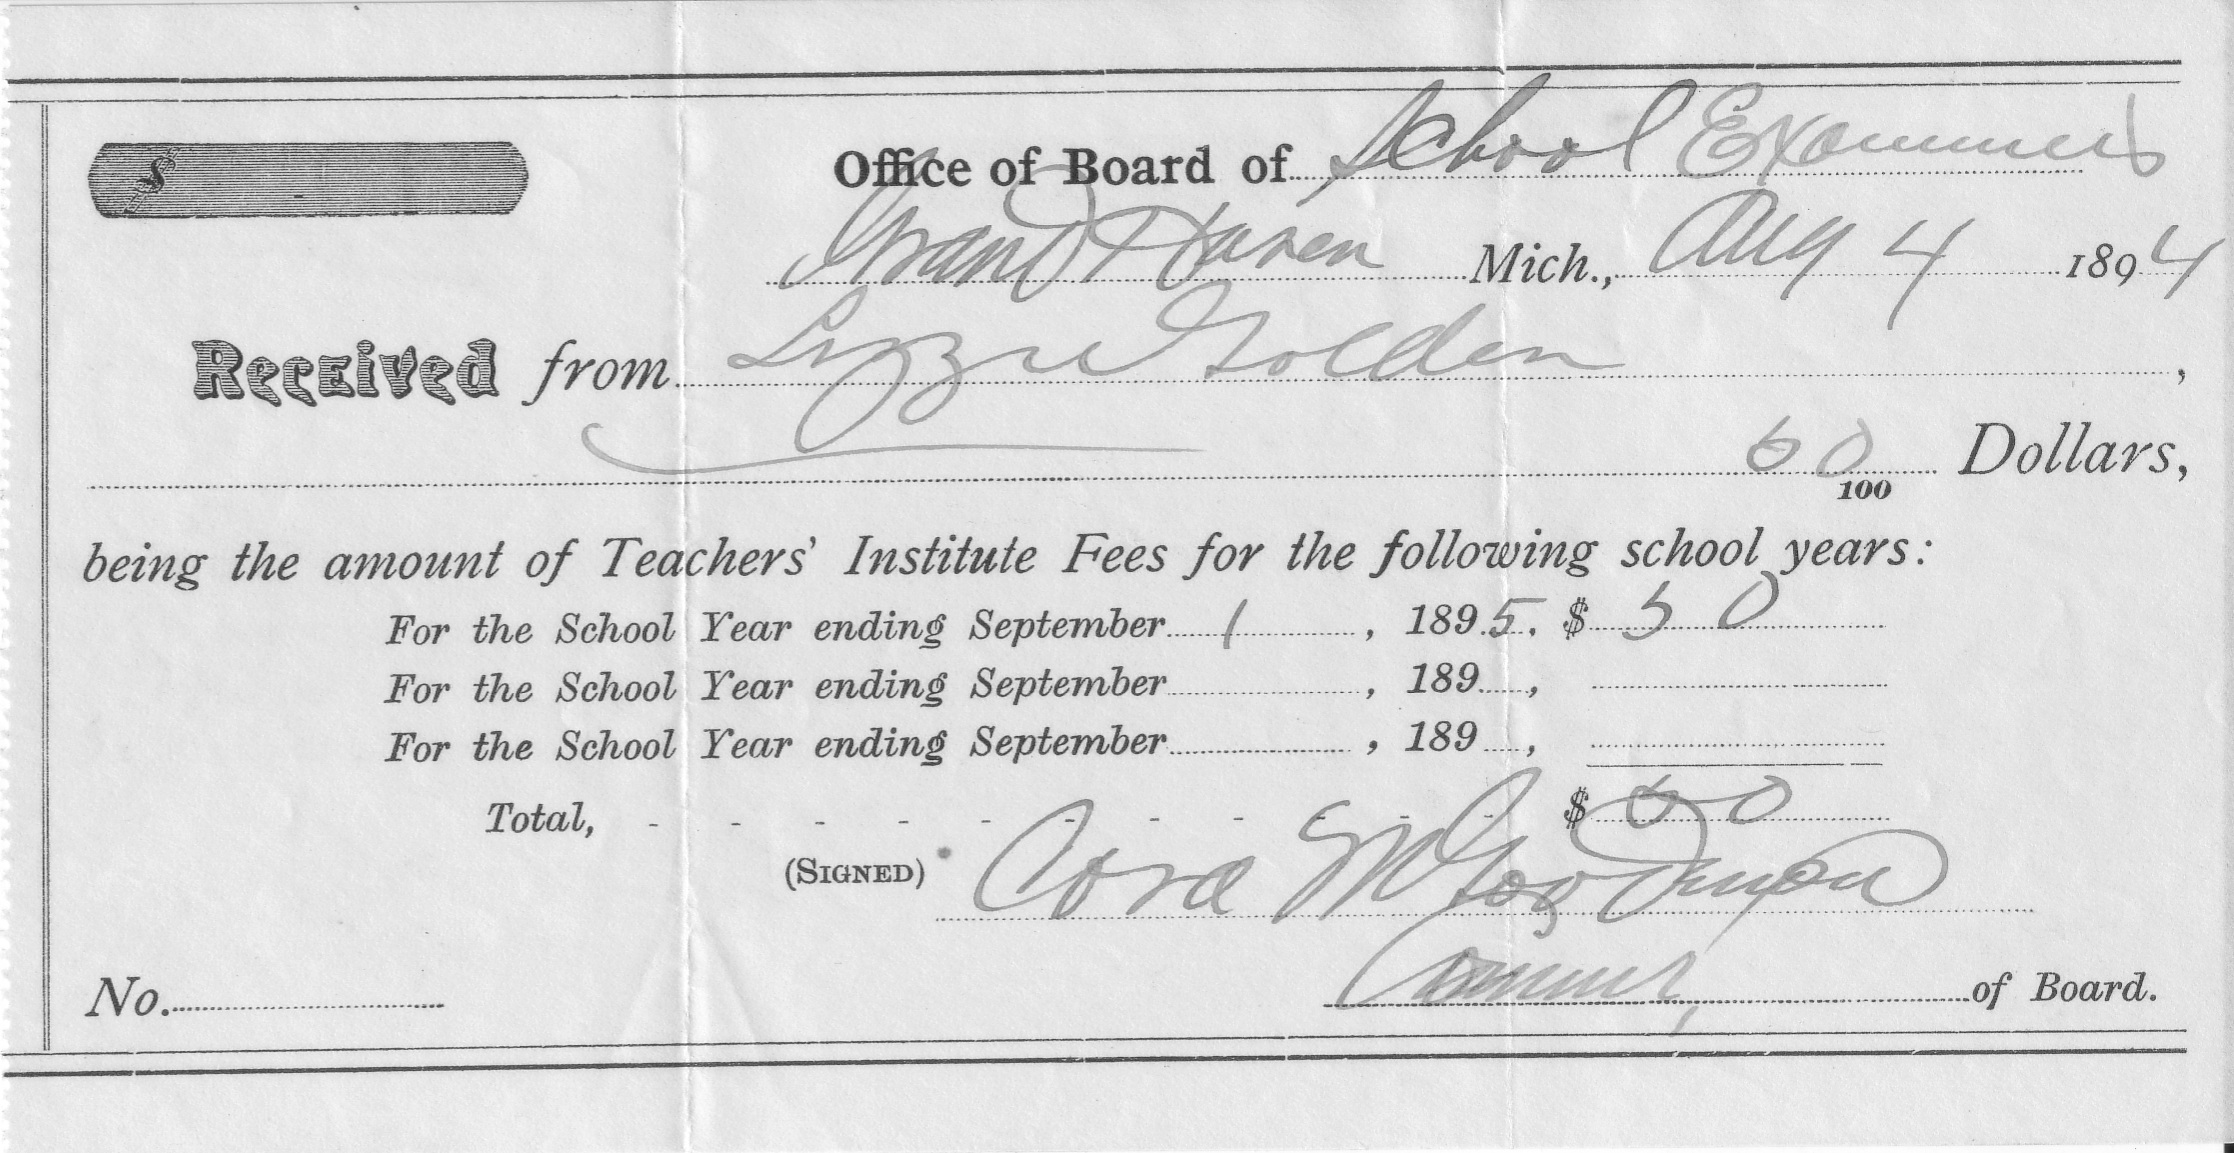 $
Office of Board of School Examiners
Grand Haven Mich., Aug 4 1894
Received from Lizzie Golden,
50/100 Dollars,
being the amount of Teachers' Institute Fees for the following school years:
For the School Year ending September 1, 1895, $ 50
For the School Year ending September , 189 ,
For the School Year ending September , 189 ,
Total, - - - - - - - - - - - $ 50
(SIGNED) Cora M Goodenow
No. of Board.